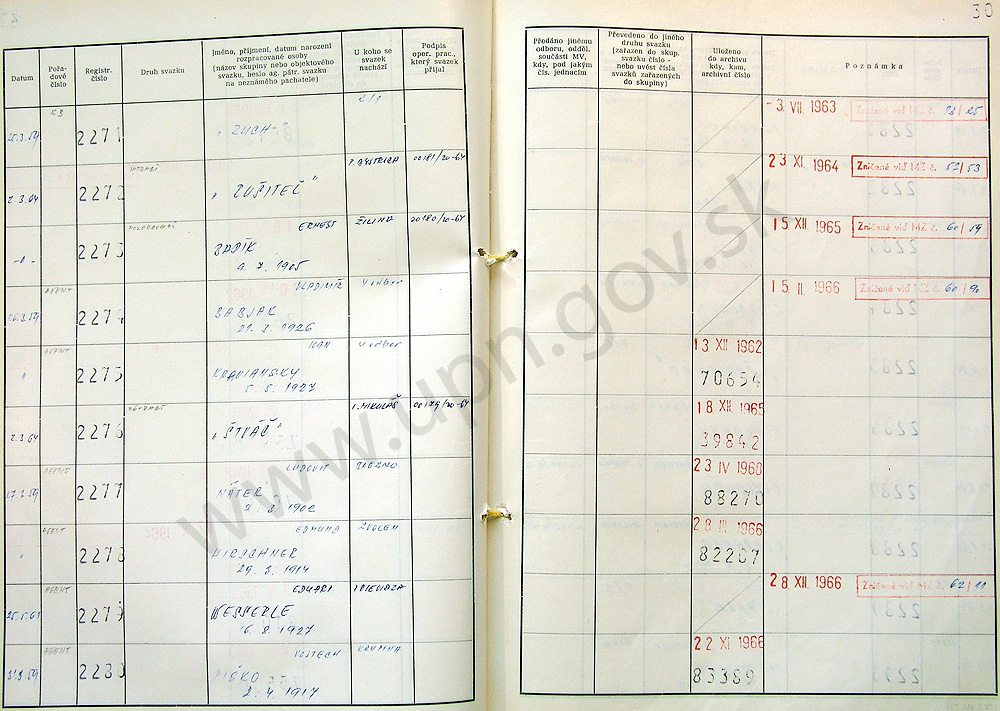 30
Datum
Pořa-
dové
číslo
Registr.
číslo
Druh svazku
Jméno, příjmení, datum narození
rozpracované osoby
(název skupiny nebo objektového
svazku, heslo ag. pátr. svazku
na neznámého pachatele)
U koho se
svazek
nachází
Podpis
oper. prac.,
který svazek
přijal
Předáno jinému
odboru, odděl.
součásti MV,
kdy, pod jakým
čís. jednacím
Převedeno do jiného
druhu svazku
(zařazen do skup.
svazku číslo -
nebo uvést čísla
svazků zařazených
do skupiny)
Uloženo
do archivu
kdy, kam,
archivní číslo
Poznámka
2271 "ZUCH"
3. VII. 1963 Zničené viď MZ č.
2.3.64 2272 "RUŠITEĽ" B. BYSTRICA 00181/20-64
23 XI. 1964 Zničené viď MZ č. 52/53
2273 ERNEST ŽILINA 00180/20-64
9. 7. 1905
15 XII. 1965 Zničené viď MZ č. 60/59
AGENT VLADIMÍR V odbor
26.3.59 2274 BABJAK
21. 3. 1926
15 II. 1966 Zničené viď MZ č. 60/90
AGENT IVAN V odbor
2275
5. 5. 1927
13 XII 1962
70654
L. MIKULÁŠ 00179/20-64
2.3.64 2276 "ŠTVÁČ"
18 XII. 1965
39842
AGENT ĽUDOVIT BREZNO
27.3.59 2277 NÁTER
2. 3. 1902
23 IV 1968
88270
AGENT EDMUND ZVOLEN
2278 HIRSCHNER
29. 3. 1914
28 III. 1966
82207
AGENT EDUARD PRIEVIDZA
2279 WESSERLE
6. 8. 1927
28 XII. 1966 Zničené viď MZ č. 62/11
AGENT VOJTECH KRUPINA
31.3.59 2280
2. 4. 1917
22 XI 1966
83389
www.upn.gov.sk